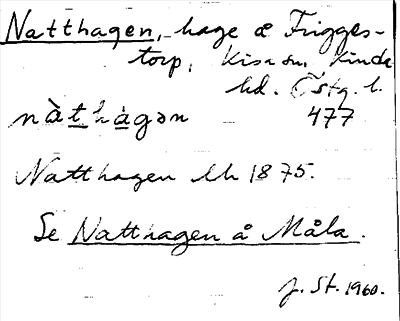 Natthagen, hage å Frigges-
torp, Kisa sn, Kinda
hd. Östg. l.
nàt hàgən 477
Natthagen Lh 1875.
Se Natthagen å Måla.
J. St. 1960.